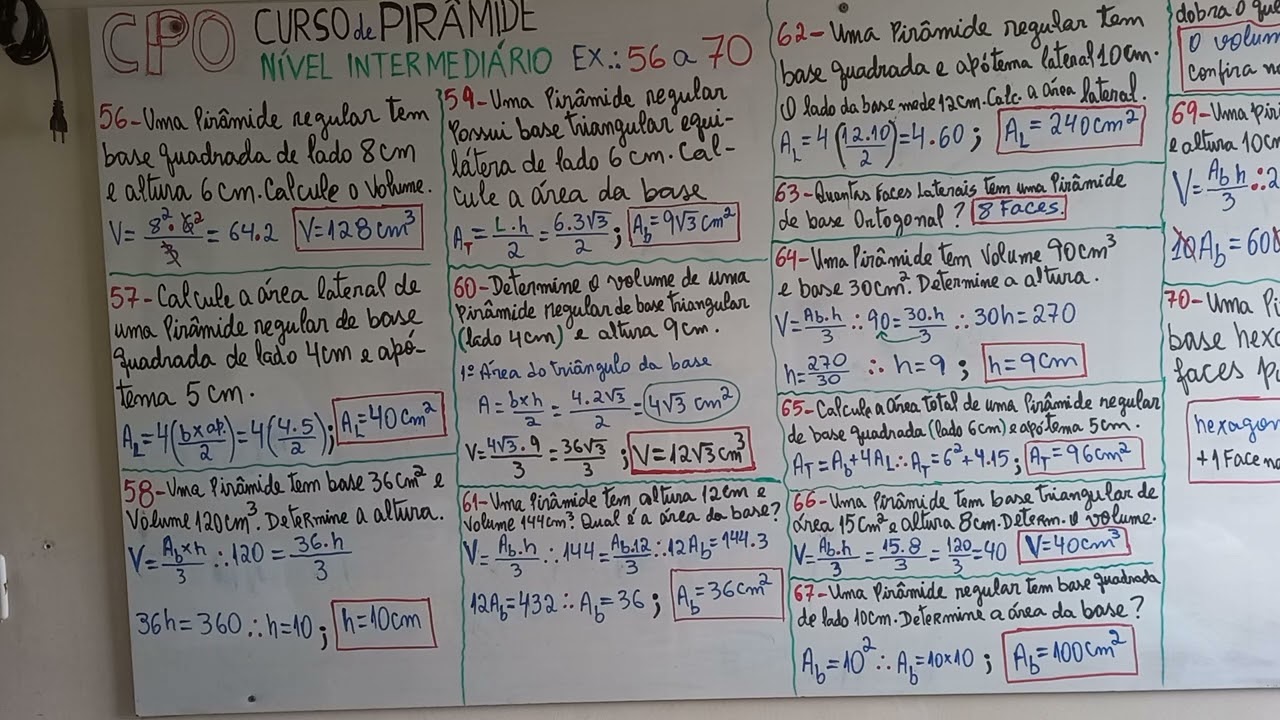 CPO CURSO de PIRÂMIDE
NÍVEL INTERMEDIÁRIO EX.: 56 a 70
56-Uma Pirâmide regular tem
base quadrada de lado 8cm
e altura 6cm. Calcule o Volume.
V=8².6²/3=64.2 V=128cm³
57-Calcule a área lateral de
uma Pirâmide regular de base
quadrada de lado 4cm e apó-
tema 5cm.
A_L=4(b×ap/2)=4(4.5/2); A_L=40cm²
58-Uma Pirâmide tem base 36cm² e
Volume 120cm³. Determine a altura.
V=A_b×h/3 ∴120=36.h/3
36h=360∴h=10; h=10cm
59-Uma Pirâmide regular
Possui base triangular equi-
látera de lado 6cm. Cal-
cule a área da base
A_T=L.h/2=6.3√3/2; A_b=9√3cm²
60-Determine o volume de uma
Pirâmide regular de base triangular
(lado 4cm) e altura 9cm.
1º Área do triângulo da base
A=b×h/2=4.2√3/2=4√3 cm²
V=4√3.9/3=36√3/3; V=12√3cm³
61-Uma Pirâmide tem altura 12cm e
volume 144cm³. Qual é a área da base?
V=Ab.h/3∴144=Ab.12/3∴12A_b=144.3
12A_b=432∴A_b=36; A_b=36cm²
62-Uma Pirâmide regular tem
base quadrada e apótema lateral 10cm.
O lado da base mede 12cm. Calc. a área lateral.
A_L=4(12.10/2)=4.60; A_L=240cm²
63-Quantas Faces Laterais tem uma Pirâmide
de base Ontogonal? 8 Faces.
64-Uma Pirâmide tem Volume 90cm³
e base 30cm². Determine a altura.
V=Ab.h/3∴90=30.h/3∴30h=270
h=270/30∴h=9; h=9cm
65-Calcule a área total de uma Pirâmide regular
de base quadrada (lado 6cm) e apótema 5cm.
A_T=A_b+4A_L∴A_T=6²+4.15; A_T=96cm²
66-Uma Pirâmide tem base triangular de
área 15cm² e altura 8cm. Determ. o volume.
V=Ab.h/3=15.8/3=120/3=40 V=40cm³
67-Uma Pirâmide regular tem base quadrada
de lado 10cm. Determine a área da base?
A_b=10²∴A_b=10×10; A_b=100cm²
dobra o
O volum
Confira
69-Uma
e altura 10cm
V=A_b h/3∴
10A_b=60
70-Uma
base hexa
faces
hexagon
+1Face